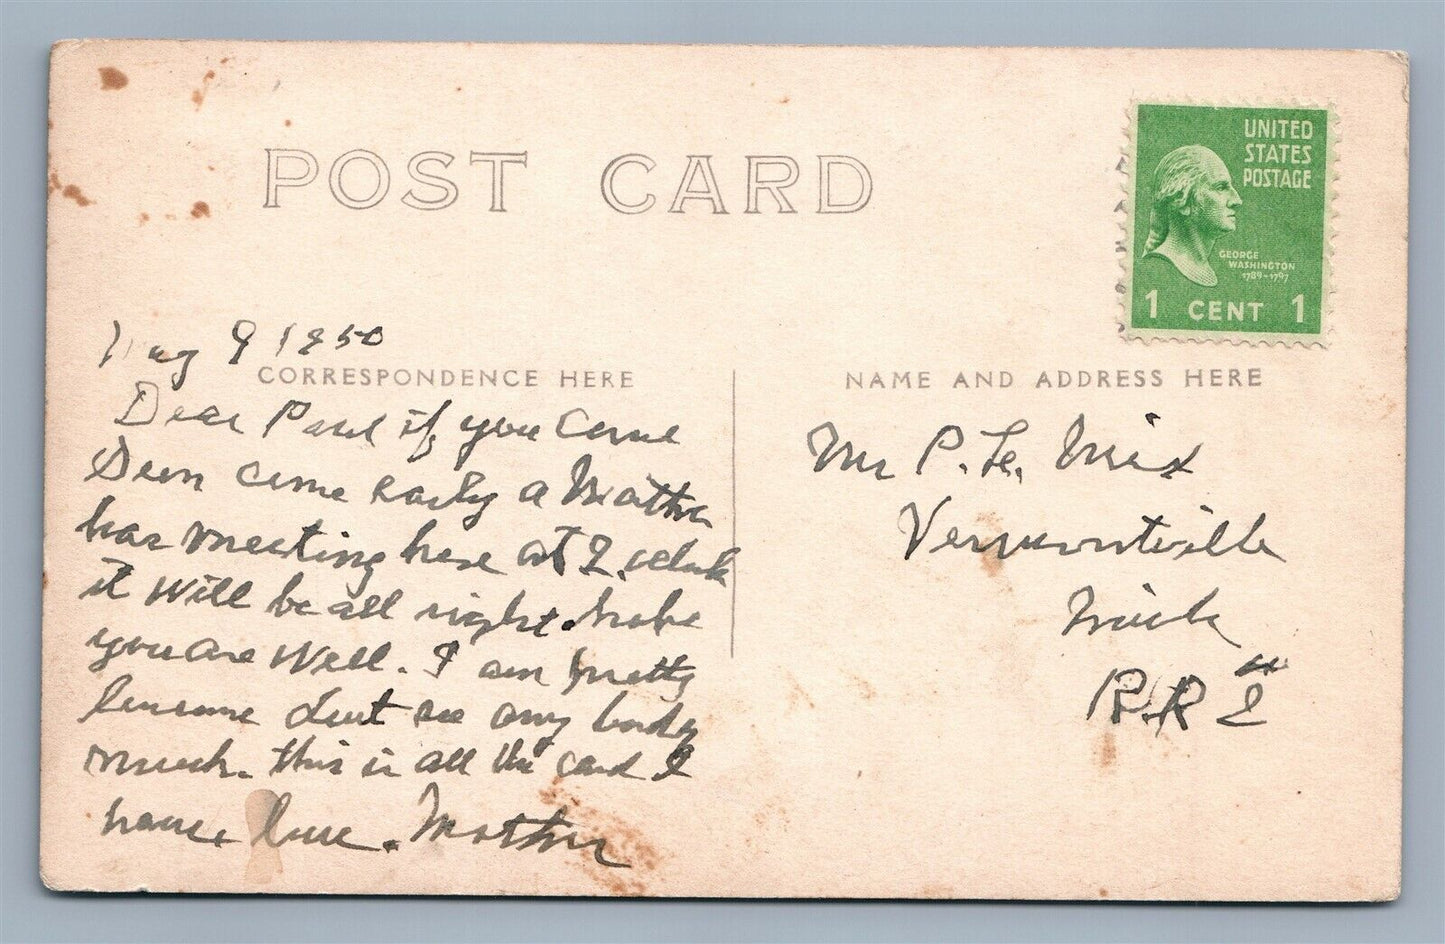 POST CARD
UNITED
STATES
POSTAGE
GEORGE
WASHINGTON
1789-1797
1 CENT 1
Aug 9 1950
CORRESPONDENCE HERE
Dear Paul if you come
come early a
has meeting here at 2. oclock
it will be all right. hope
you are well. I am pretty
lonesome dont see any body
much. this is all the card I
have. love. Mother
NAME AND ADDRESS HERE
Mr P. L. Mix
Vermontville
Mich
R.R 2